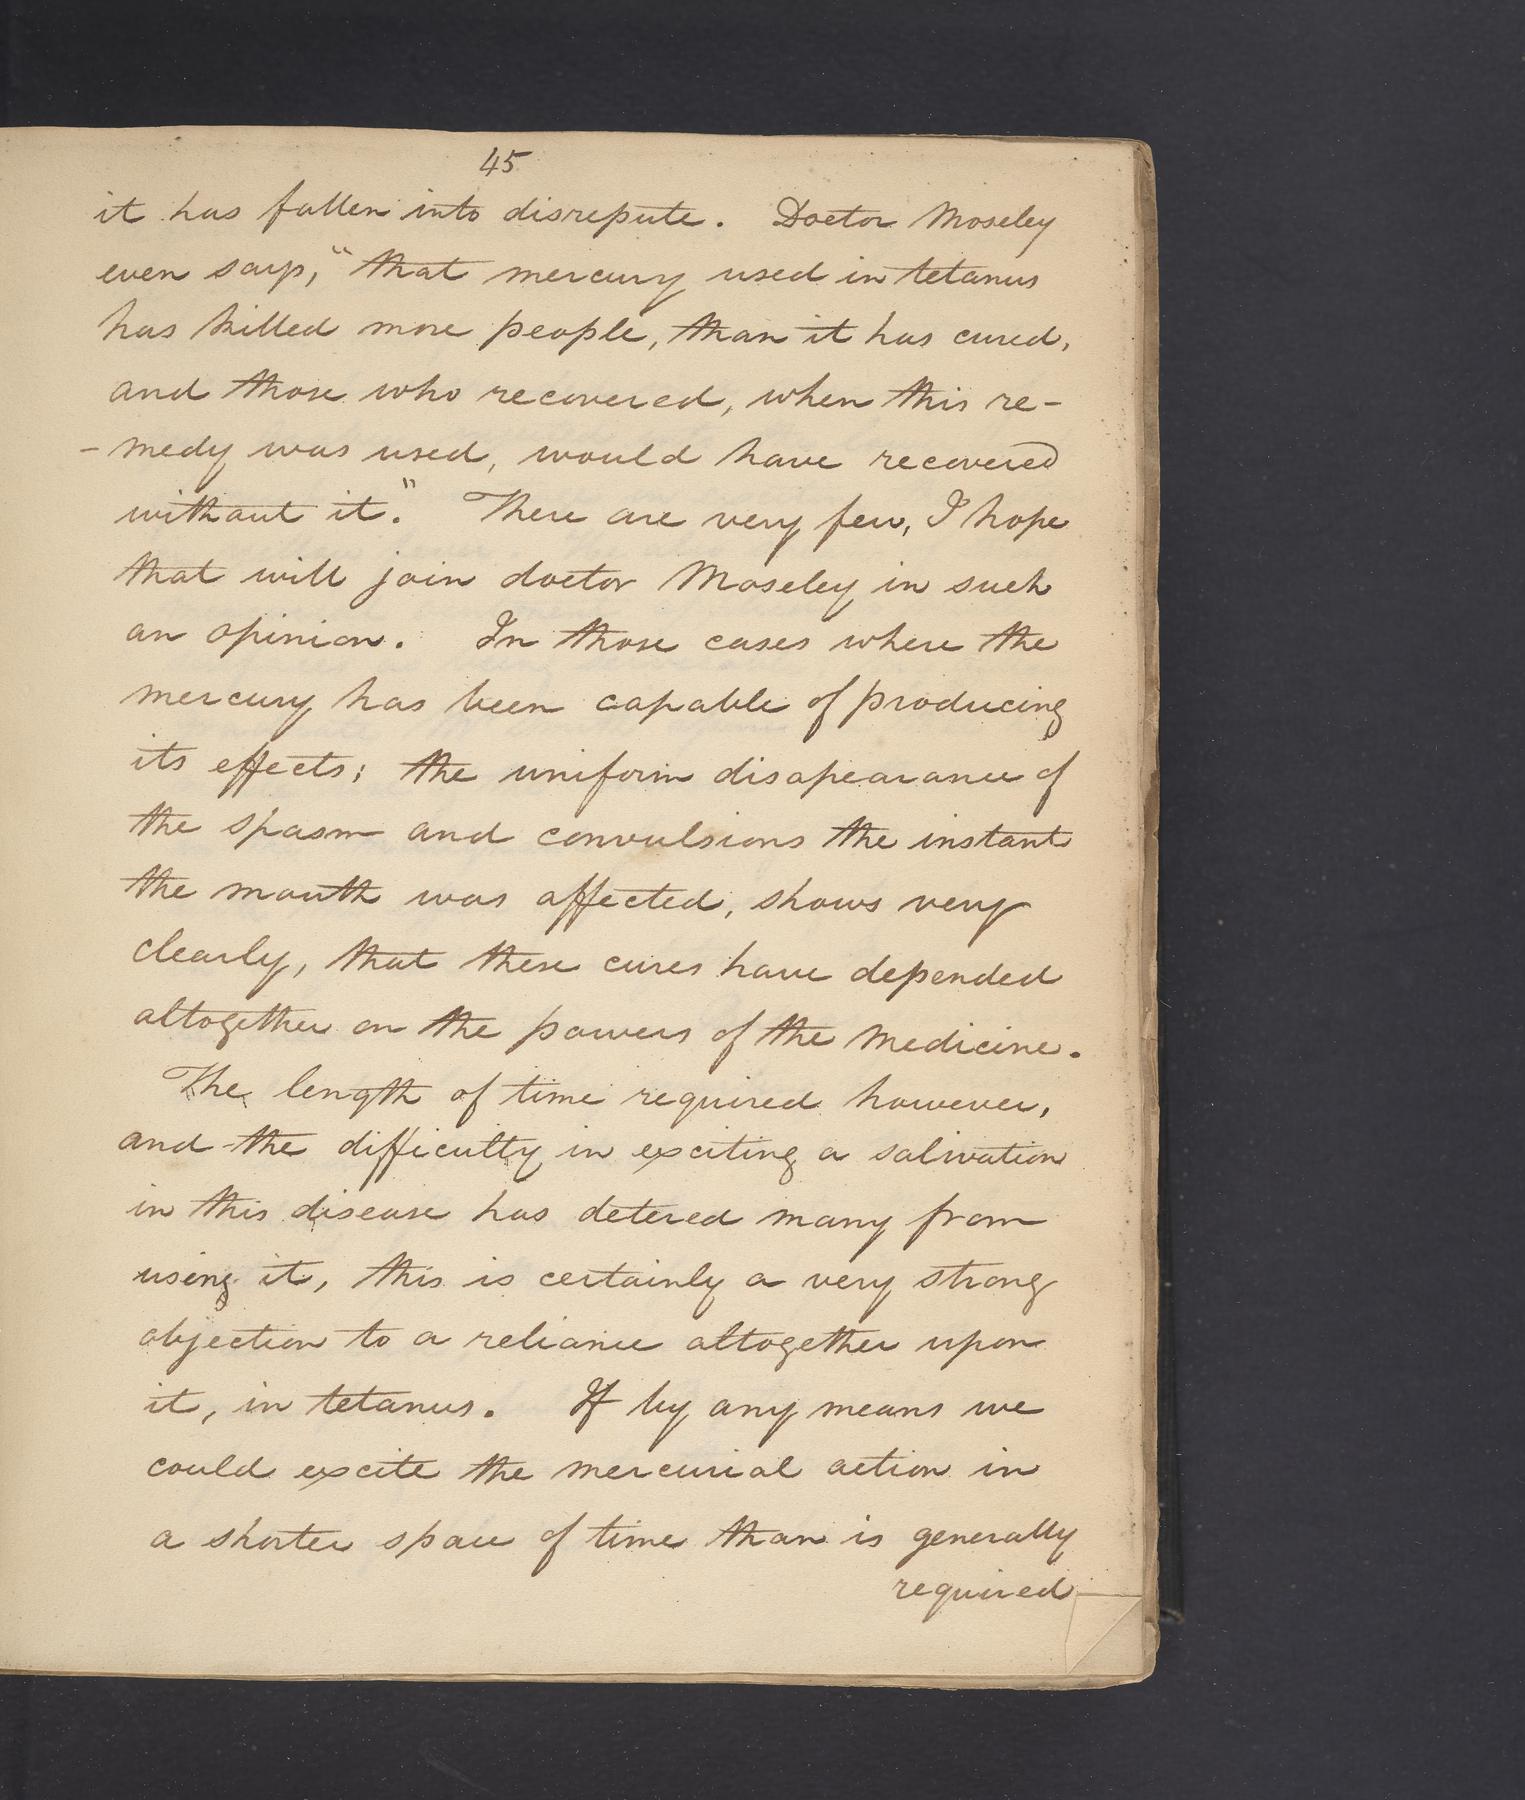 45
it has fallen into disrepute. Doctor Moseley
even says, "that mercury used in tetanus
has killed more people, than it has cured,
and those who recovered, when this re-
-medy was used, would have recovered
without it." There are very few, I hope
that will join doctor Moseley in such
an opinion. In those cases where the
mercury has been capable of producing
its effects; the uniform disapearance of
the spasm and convulsions the instant
the mouth was affected, shows very
clearly, that these cures have depended
altogether on the powers of the medicine.
The length of time required however,
and the difficulty in exciting a salivation
in this disease has detered many from
using it, this is certainly a very strong
objection to a reliance altogether upon
it, in tetanus. If by any means we
could excite the mercurial action in
a shorter space of time than is generally
required